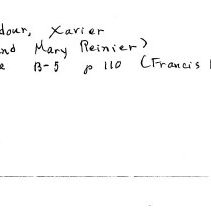 dour, Xavier
nd Mary Reinier)
e B-5 p 110 (Francis